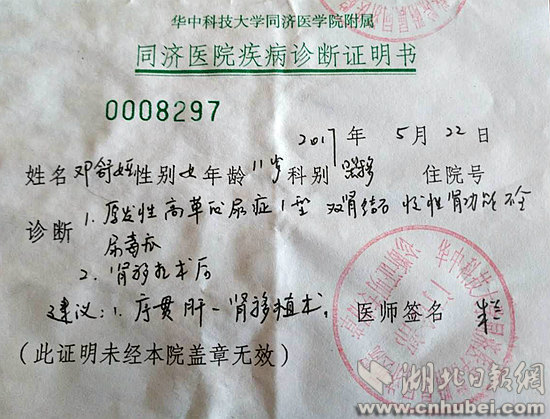 华中科技大学同济医学院附属
同济医院疾病诊断证明书
0008297
2017年 5月 22日
姓名 邓舒妍 性别 女 年龄 11岁 科别 器移 住院号
诊断 1. 原发性高草酸尿症1型 双肾结石 慢性肾功能不全
尿毒症
2. 肾移植术后
建议:1. 序贯肝-肾移植术, 医师签名
(此证明未经本院盖章无效)
湖北日报網
www.cnhubei.com